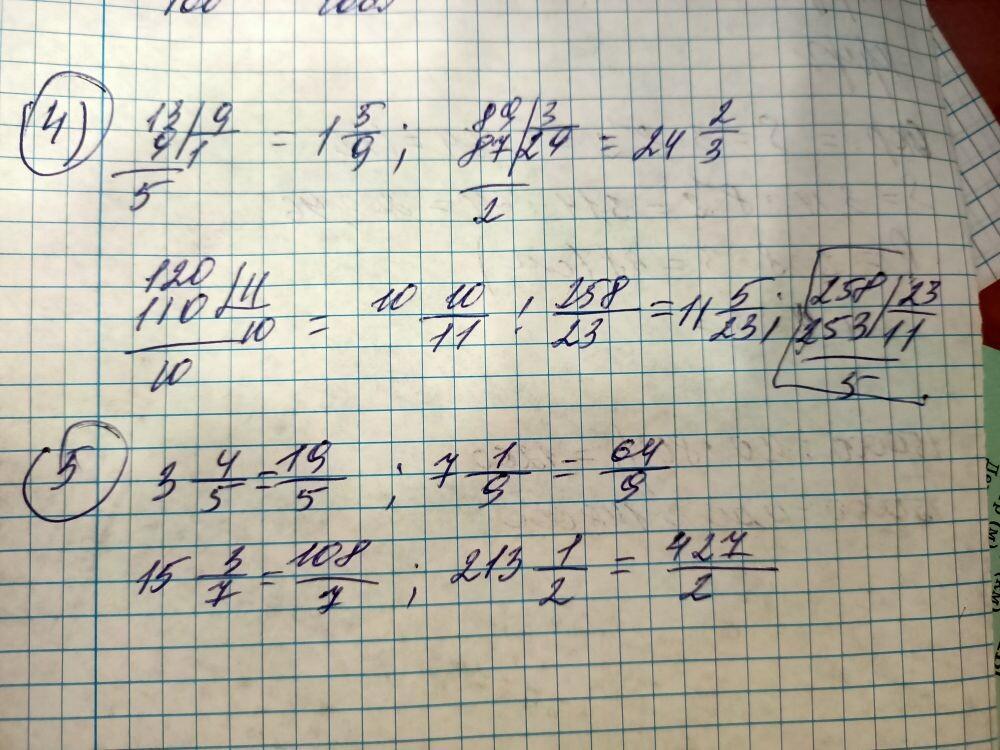 4) 13/9 9/1 5 = 1 5/9 ; 89/3 87/29 2 = 24 2/3
120 110/11 10 10 = 10 10/11 ; 258/23 = 11 5/23 ; 258/23 253/11 5
5 3 4/5 = 19/5 ; 7 1/9 = 64/9
15 3/7 = 108/7 ; 213 1/2 = 427/2